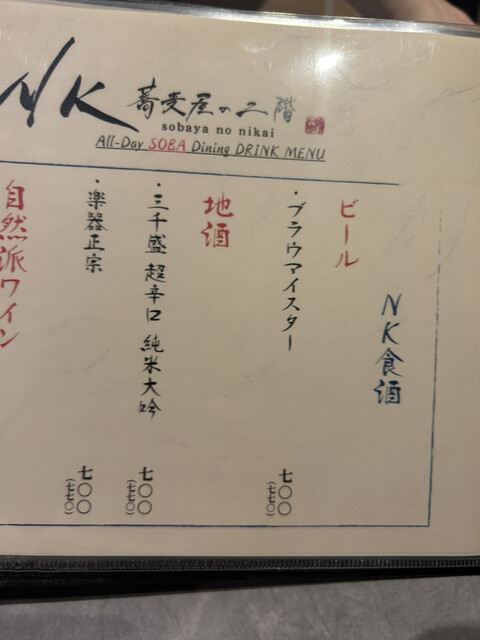 NK 蕎麦屋の二階
sobaya no nikai
All-Day SOBA Dining DRINK MENU
NK食酒
ビール
・ブラウマイスター 七〇〇
(七七〇)
地酒
・三千盛 超辛口 純米大吟 七〇〇
(七七〇)
・楽器正宗 七〇〇
(七七〇)
自然派ワイン